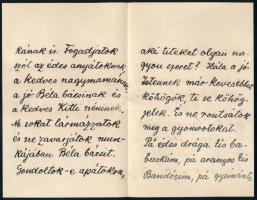 kának is. Fogadjatok
szót az édes anyátoknak
a kedves nagymamának,
a jó Béla bácsinak és
a kedves Kitti néninek.
Ne sokat lármázzatok
és ne zavarjátok mun-
kájában Béla bácsit.
Gondoltok-e apátokra,
aki titeket olyan na-
gyon szeret? Hála a jó
Istennek már kevesebbet
köhögök, ti se köhög-
jetek. És ne rontsátok
meg a gyomrotokat.
Pá édes drága kis ba-
buskáim, pá aranyos kis
Bandócim, pá gyémánt